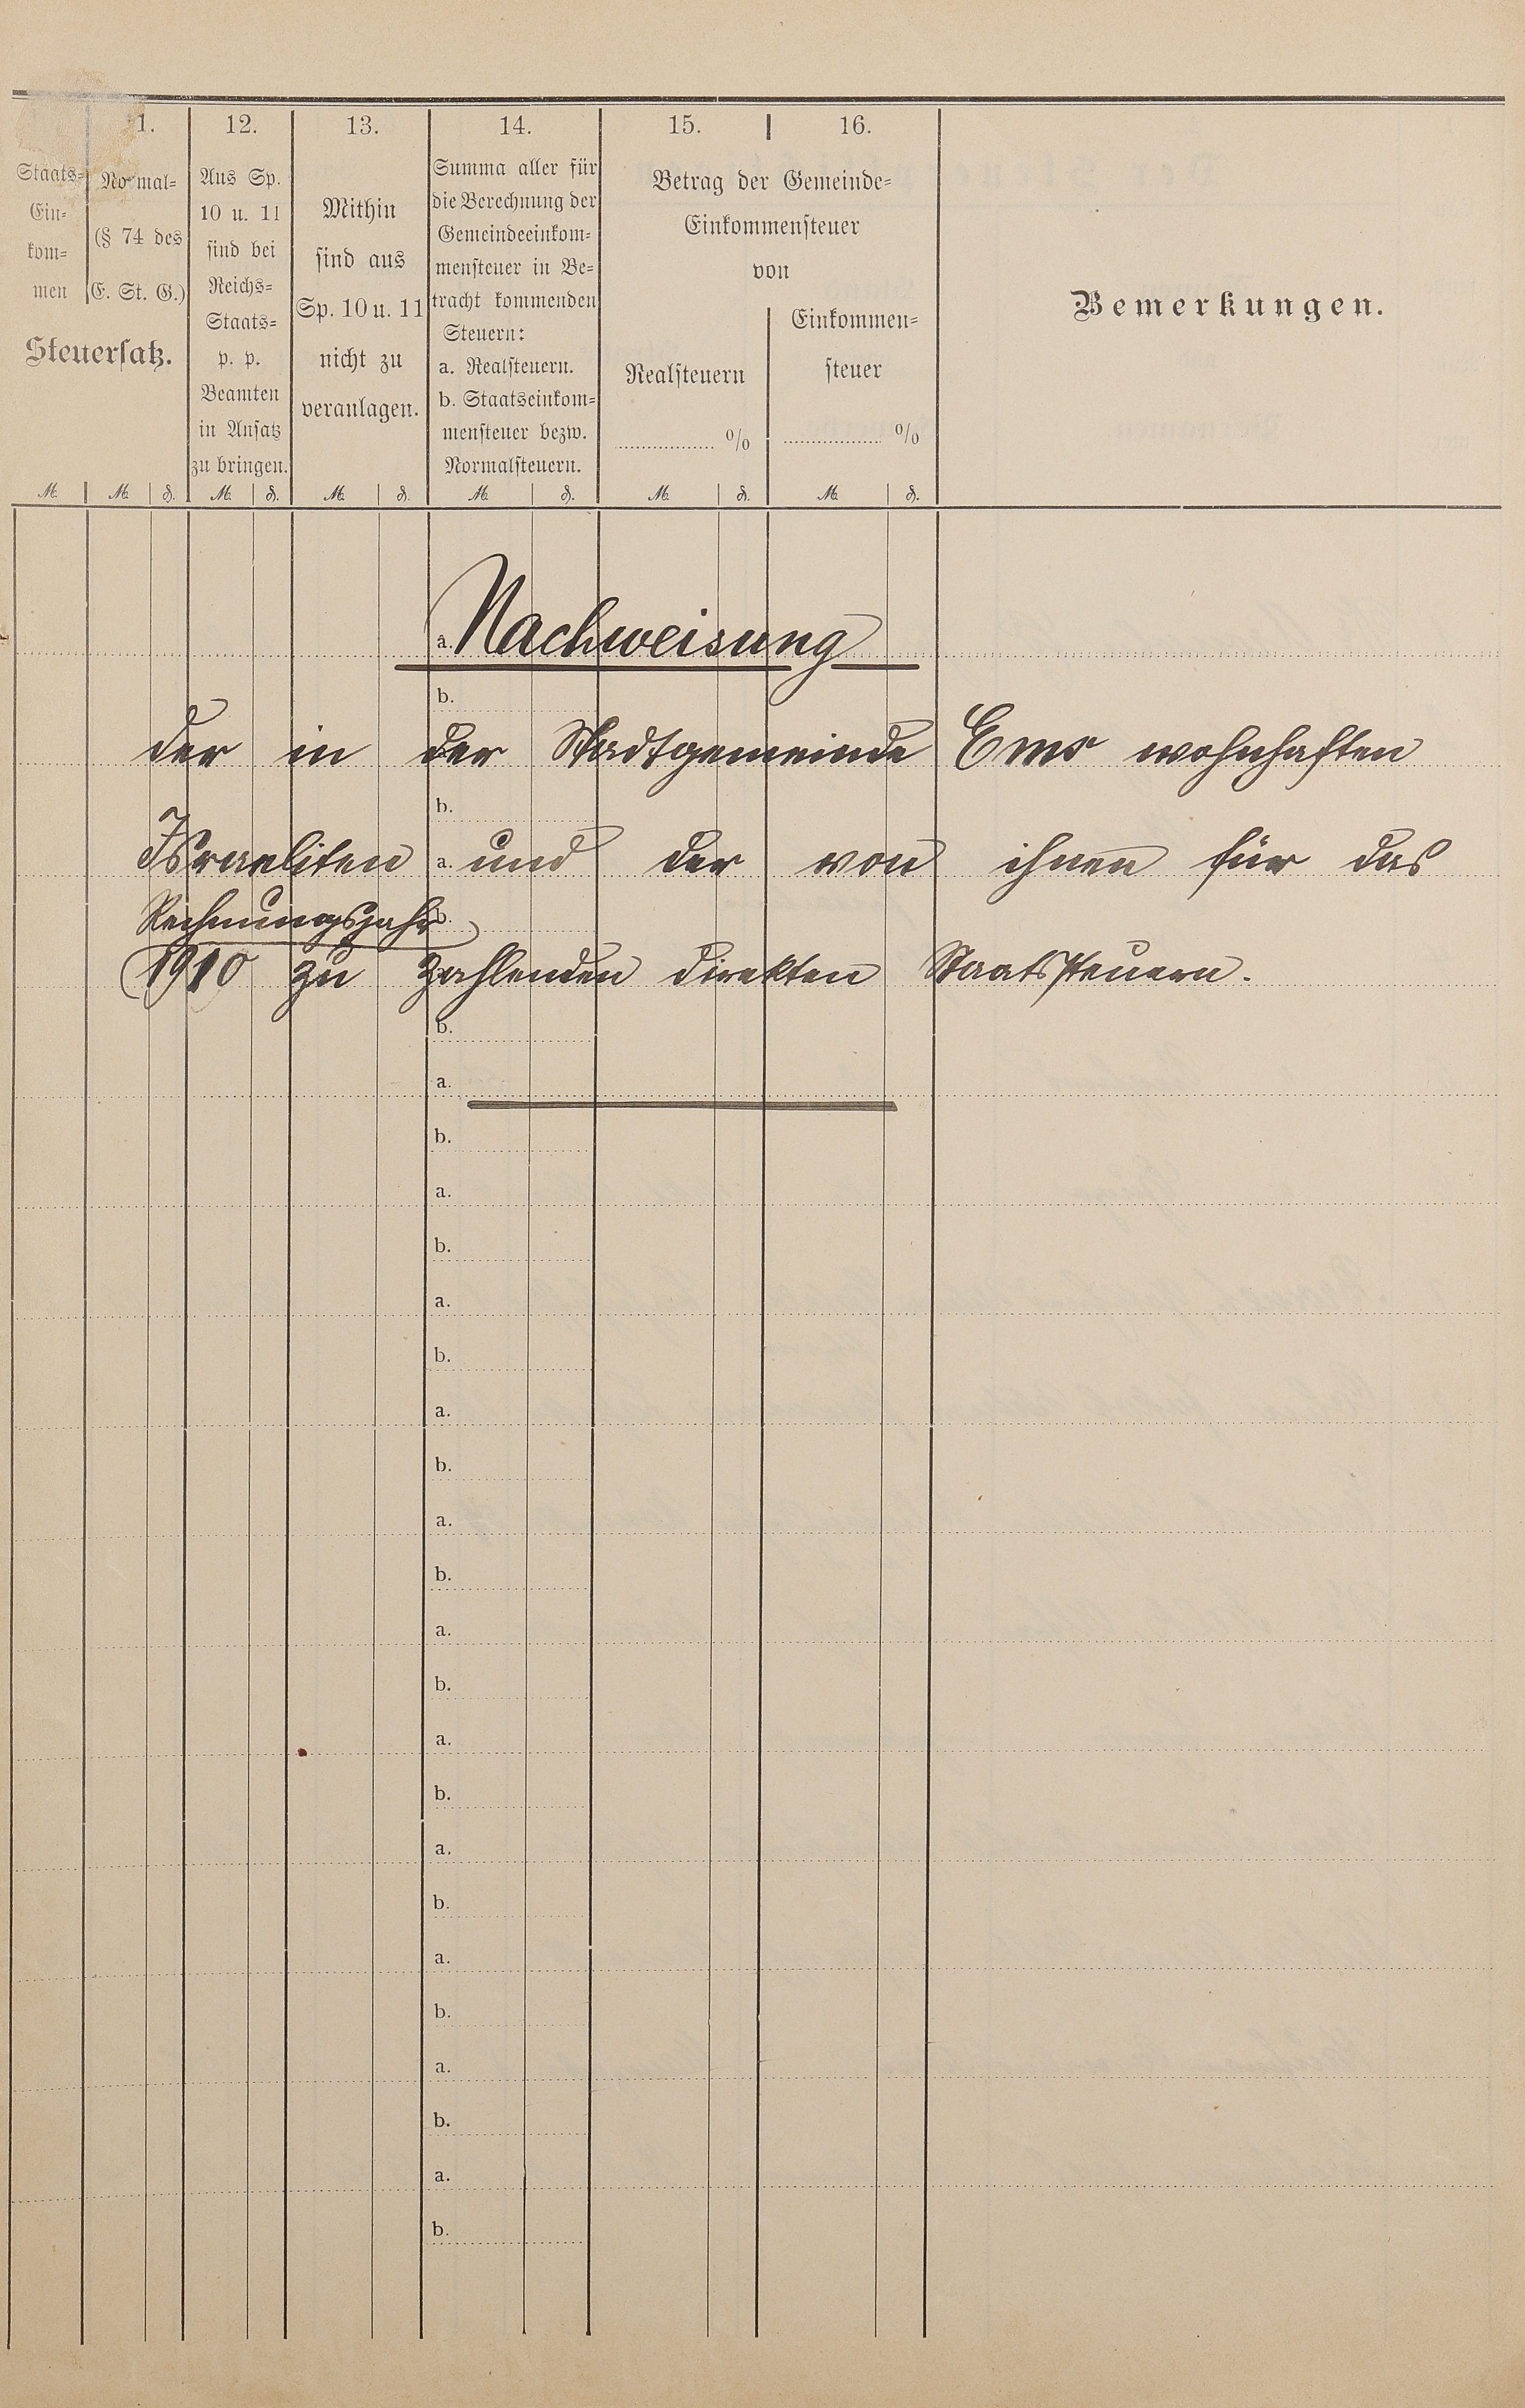 1. 12. 13. 14. 15. 16.
Staats-
Ein-
kom-
men
Normal-
(§ 74 des
E. St. G.)
Steuersatz.
Aus Sp.
10 u. 11
sind bei
Reichs-
Staats-
p. p.
Beamten
in Ansatz
zu bringen.
Mithin
sind aus
Sp. 10 u. 11
nicht zu
veranlagen.
Summa aller für
die Berechnung der
Gemeindeeinkom-
mensteuer in Be-
tracht kommenden
Steuern:
a. Realsteuern.
b. Staatseinkom-
mensteuer bezw.
Normalsteuern.
Betrag der Gemeinde-
Einkommensteuer
von
Realsteuern
%
Einkommen-
steuer
%
Bemerkungen.
M. M. ₰. M. ₰. M. ₰. M. ₰. M. ₰. M. ₰.
a. Nachweisung
b.
der in der Stadtgemeinde Ems wohnhaften
b.
Israeliten a. und der von ihnen für das
Rechnungsjahr b.
1910 zu zahlenden direkten Staatssteuern.
b.
a.
b.
a.
b.
a.
b.
a.
b.
a.
b.
a.
b.
a.
b.
a.
b.
a.
b.
a.
b.
a.
b.